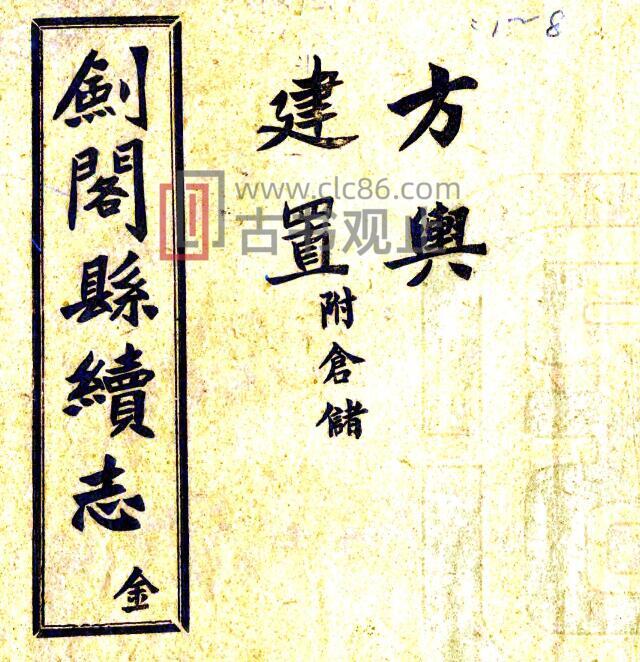 1~8
方輿
建置
附倉儲
劍閣縣續志
金
www.clc86.com
古书观止